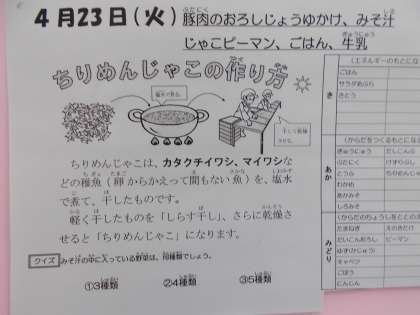 4月23日(火)豚肉のおろしじょうゆかけ、みそ汁
じゃこピーマン、ごはん、牛乳
ちりめんじゃこの作り方
塩水で煮る。
干して乾燥させる。
ちりめんじゃこは、カタクチイワシ、マイワシな
どの稚魚(卵からかえって間もない魚)を、塩水
で煮て、干したものです。
軽く干したものを「しらす干し」、さらに乾燥さ
せると「ちりめんじゃこ」になります。
クイズ
みそ汁の中に入っている野菜は、何種類でしょう。
①3種類 ②4種類 ③5種類
(エネルギーのもとになる
き
ごはん
サラダあぶら
さとう
(からだをつくるもとになる
あか
ぎゅうにゅう だしこんぶ
ぶたにく けずりぶし
とうふ ちりめんじゃこ
わかめ
あかみそ
しろみそ
(からだのちょうしをととのえ
みどり
たまねぎ えのきたけ
だいこんおろし ピーマン
ゆずりじゅう
キャベツ
ごぼう
にんじん